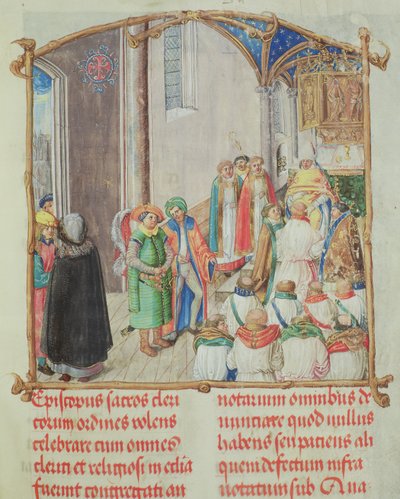 Episcopus sacros cleri
corum ordines volens
celebrare cum omnes
cleri et religiosi in ecclia
fuerint congregati an
notarium omnibus de
nunciare quod nullus
habens seu patiens ali
quem defectum infra
notatum sub